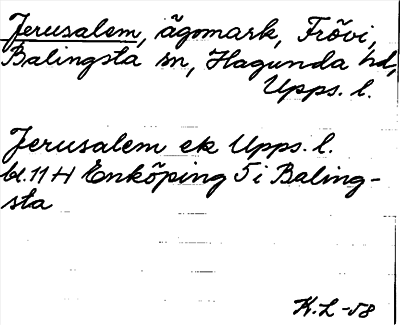 Jerusalem, ägomark, Frövi,
Balingsta sn, Hagunda hd,
Upps. l.
Jerusalem ek Upps. l.
bl. 11 H Enköping 5 i Baling-
sta
K.L -58